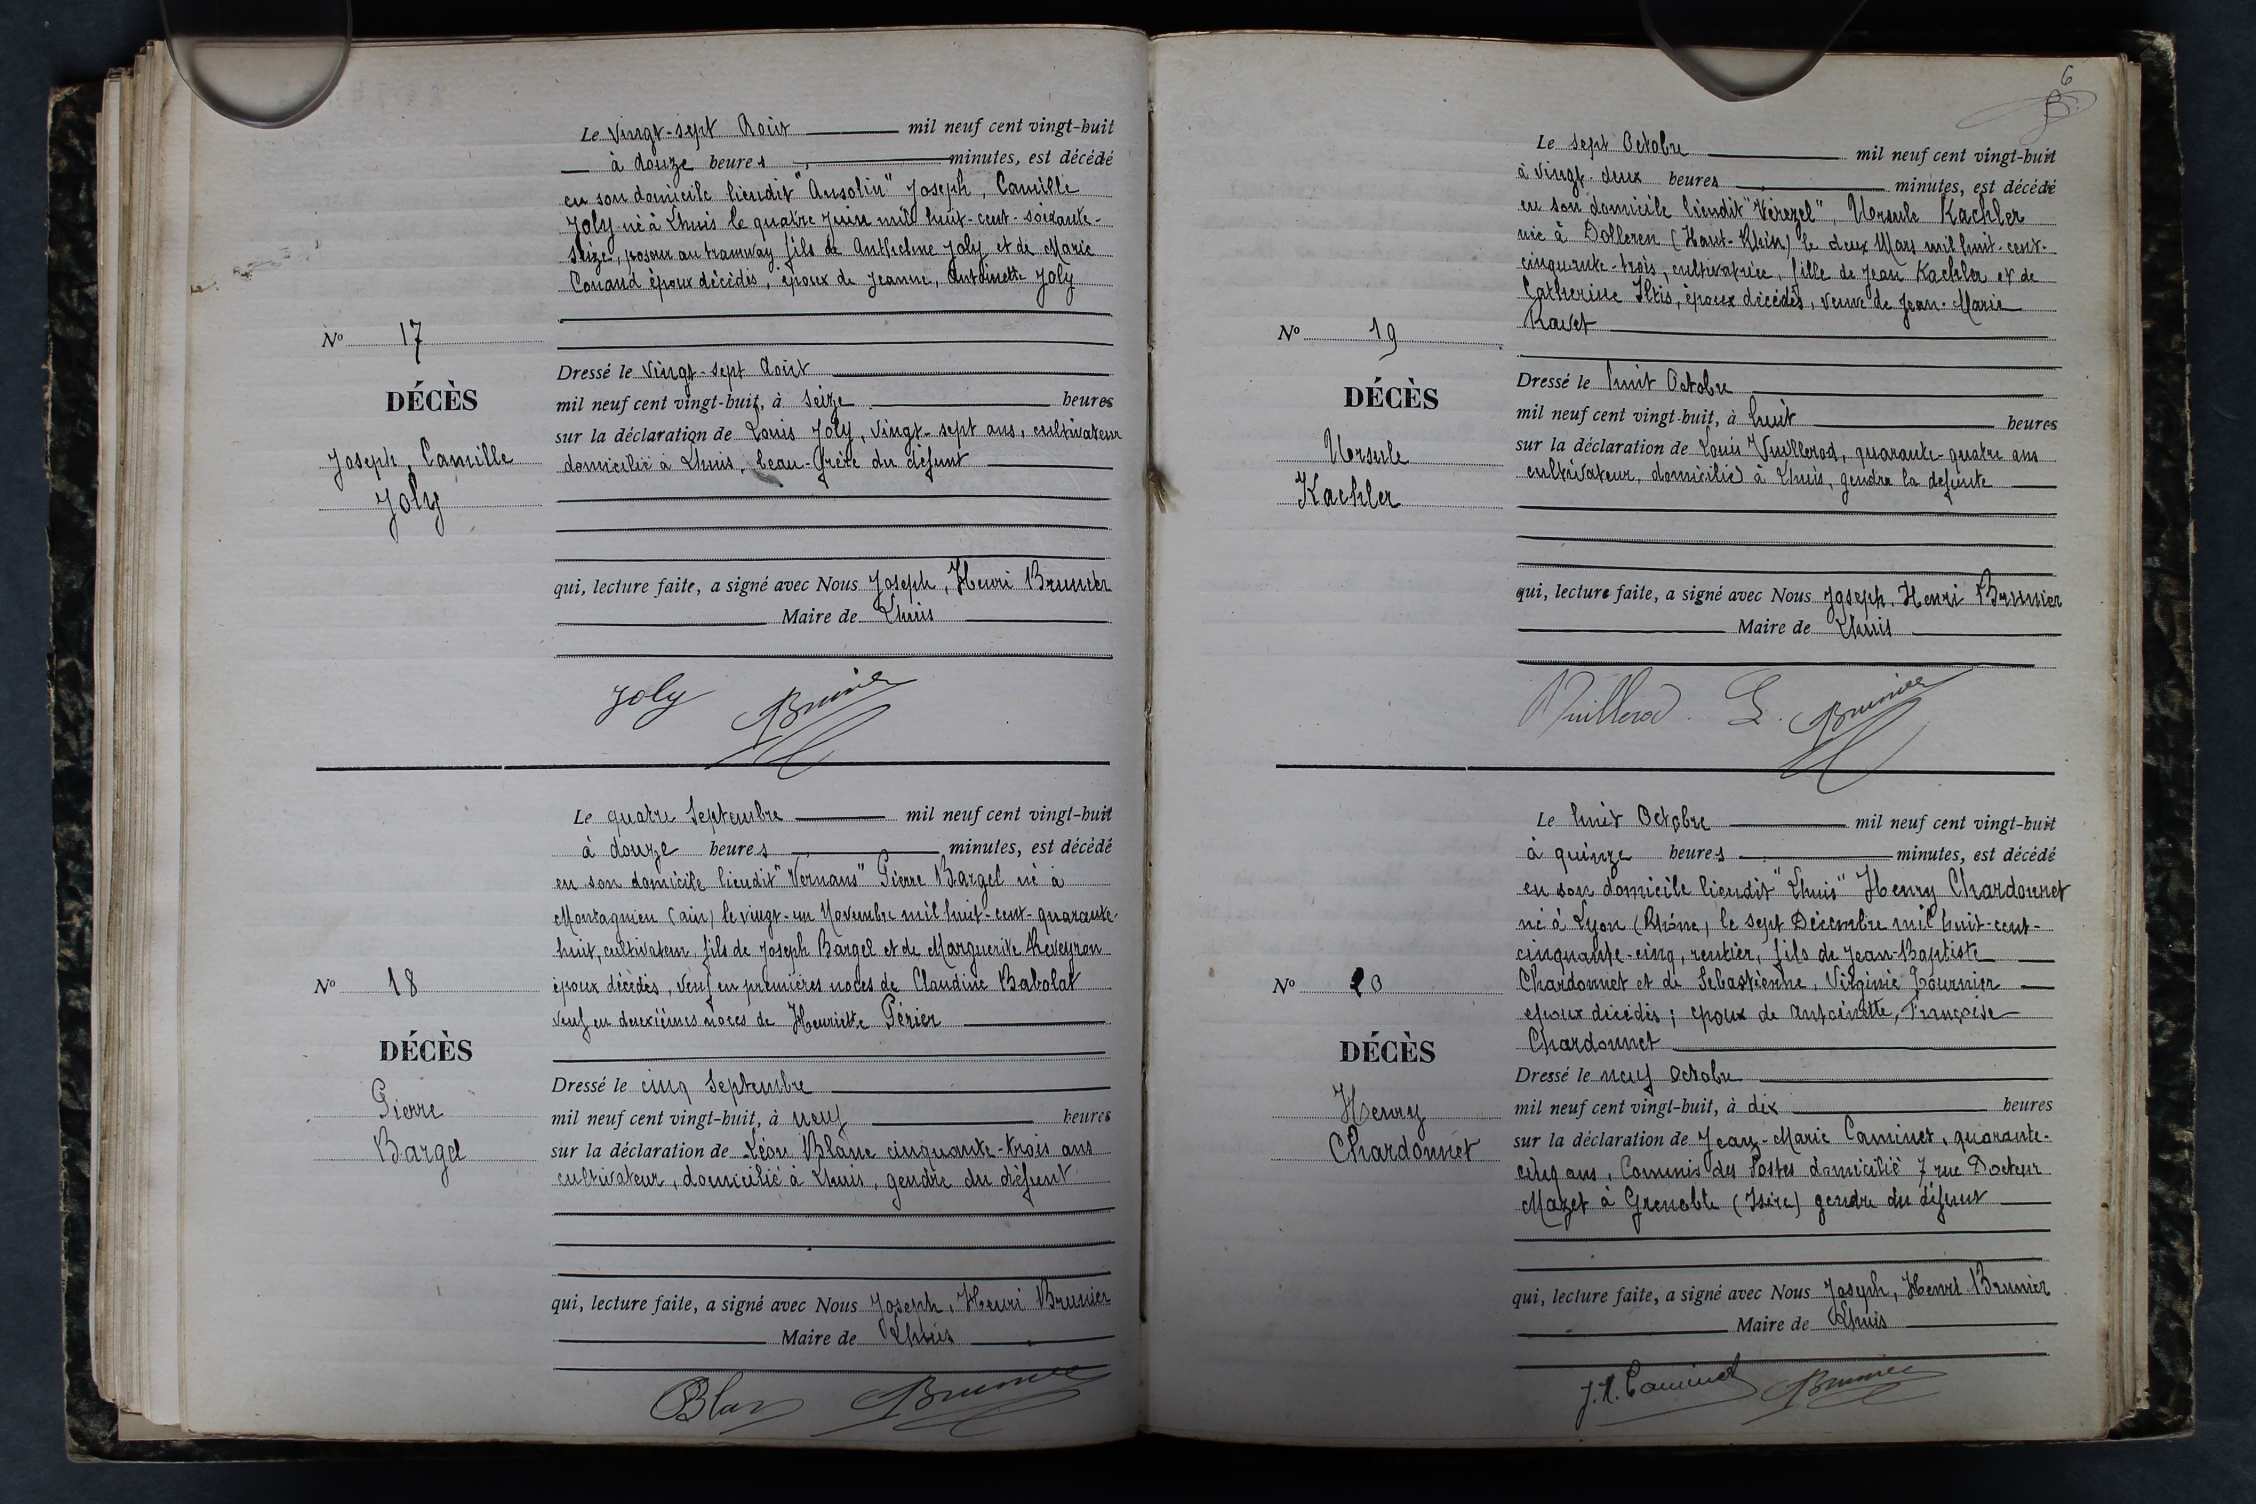 Le Vingt-sept Août mil neuf cent vingt-huit
à douze heures minutes, est décédé
en son domicile lieudit "Ansolin" Joseph, Camille
Joly né à Lhuis le quatre Juin mil huit-cent-soixante-
seize, poseur au tramway fils de Anthelme Joly et de Marie
Conand époux décédés, époux de Jeanne, Antoinette Joly
No 17
DÉCÈS
Joseph, Camille
Joly
Dressé le vingt-sept Août
mil neuf cent vingt-huit, à seize heures
sur la déclaration de Louis Joly, vingt-sept ans, cultivateur
domicilié à Lhuis, beau-frère du défunt
qui, lecture faite, a signé avec Nous Joseph, Henri Brunier
Maire de Lhuis
Joly Brunier
Le quatre Septembre mil neuf cent vingt-huit
à douze heures minutes, est décédé
en son domicile lieudit "Vernans" Pierre Bargel né à
Montagnieu (Ain) le vingt-un Novembre mil huit-cent-quarante-
huit, cultivateur, fils de Joseph Bargel et de Marguerite Reveyron
époux décédés, veuf en premières noces de Claudine Babolat
veuf en deuxièmes noces de Henriette Périer
No 18
DÉCÈS
Pierre
Bargel
Dressé le cinq Septembre
mil neuf cent vingt-huit, à neuf heures
sur la déclaration de Léon Blanc cinquante-trois ans
cultivateur, domicilié à Lhuis, gendre du défunt
qui, lecture faite, a signé avec Nous Joseph, Henri Brunier
Maire de Lhuis
Blanc Brunier
6
Le sept Octobre mil neuf cent vingt-huit
à vingt-deux heures minutes, est décédé
en son domicile lieudit "Vérizel", Ursule Kachler
née à Dolleren (Haut-Rhin) le deux Mars mil huit-cent-
cinquante-trois, cultivatrice, fille de Jean Kachler et de
Catherine Iltis, époux décédés, veuve de Jean-Marie
Ravet
No 19
DÉCÈS
Ursule
Kachler
Dressé le huit Octobre
mil neuf cent vingt-huit, à huit heures
sur la déclaration de Louis Vuillerod, quarante-quatre ans
cultivateur, domicilié à Lhuis, gendre la défunte
qui, lecture faite, a signé avec Nous Joseph, Henri Brunier
Maire de Lhuis
Vuillerod L. Brunier
Le huit Octobre mil neuf cent vingt-huit
à quinze heures minutes, est décédé
en son domicile lieudit "Lhuis" Henry Chardonnet
né à Lyon (Rhône) le sept Décembre mil huit-cent-
cinquante-cinq, rentier, fils de Jean-Baptiste
Chardonnet et de Sebastienne, Virginie Fournier
époux décédés; époux de Antoinette, Françoise
Chardonnet
No 20
DÉCÈS
Henry
Chardonnet
Dressé le neuf Octobre
mil neuf cent vingt-huit, à dix heures
sur la déclaration de Jean-Marie Caminet, quarante-
cinq ans, Commis des Postes domicilié 7 rue Docteur
Mazet à Grenoble (Isère) gendre du défunt
qui, lecture faite, a signé avec Nous Joseph, Henri Brunier
Maire de Lhuis
J. M. Caminet Brunier